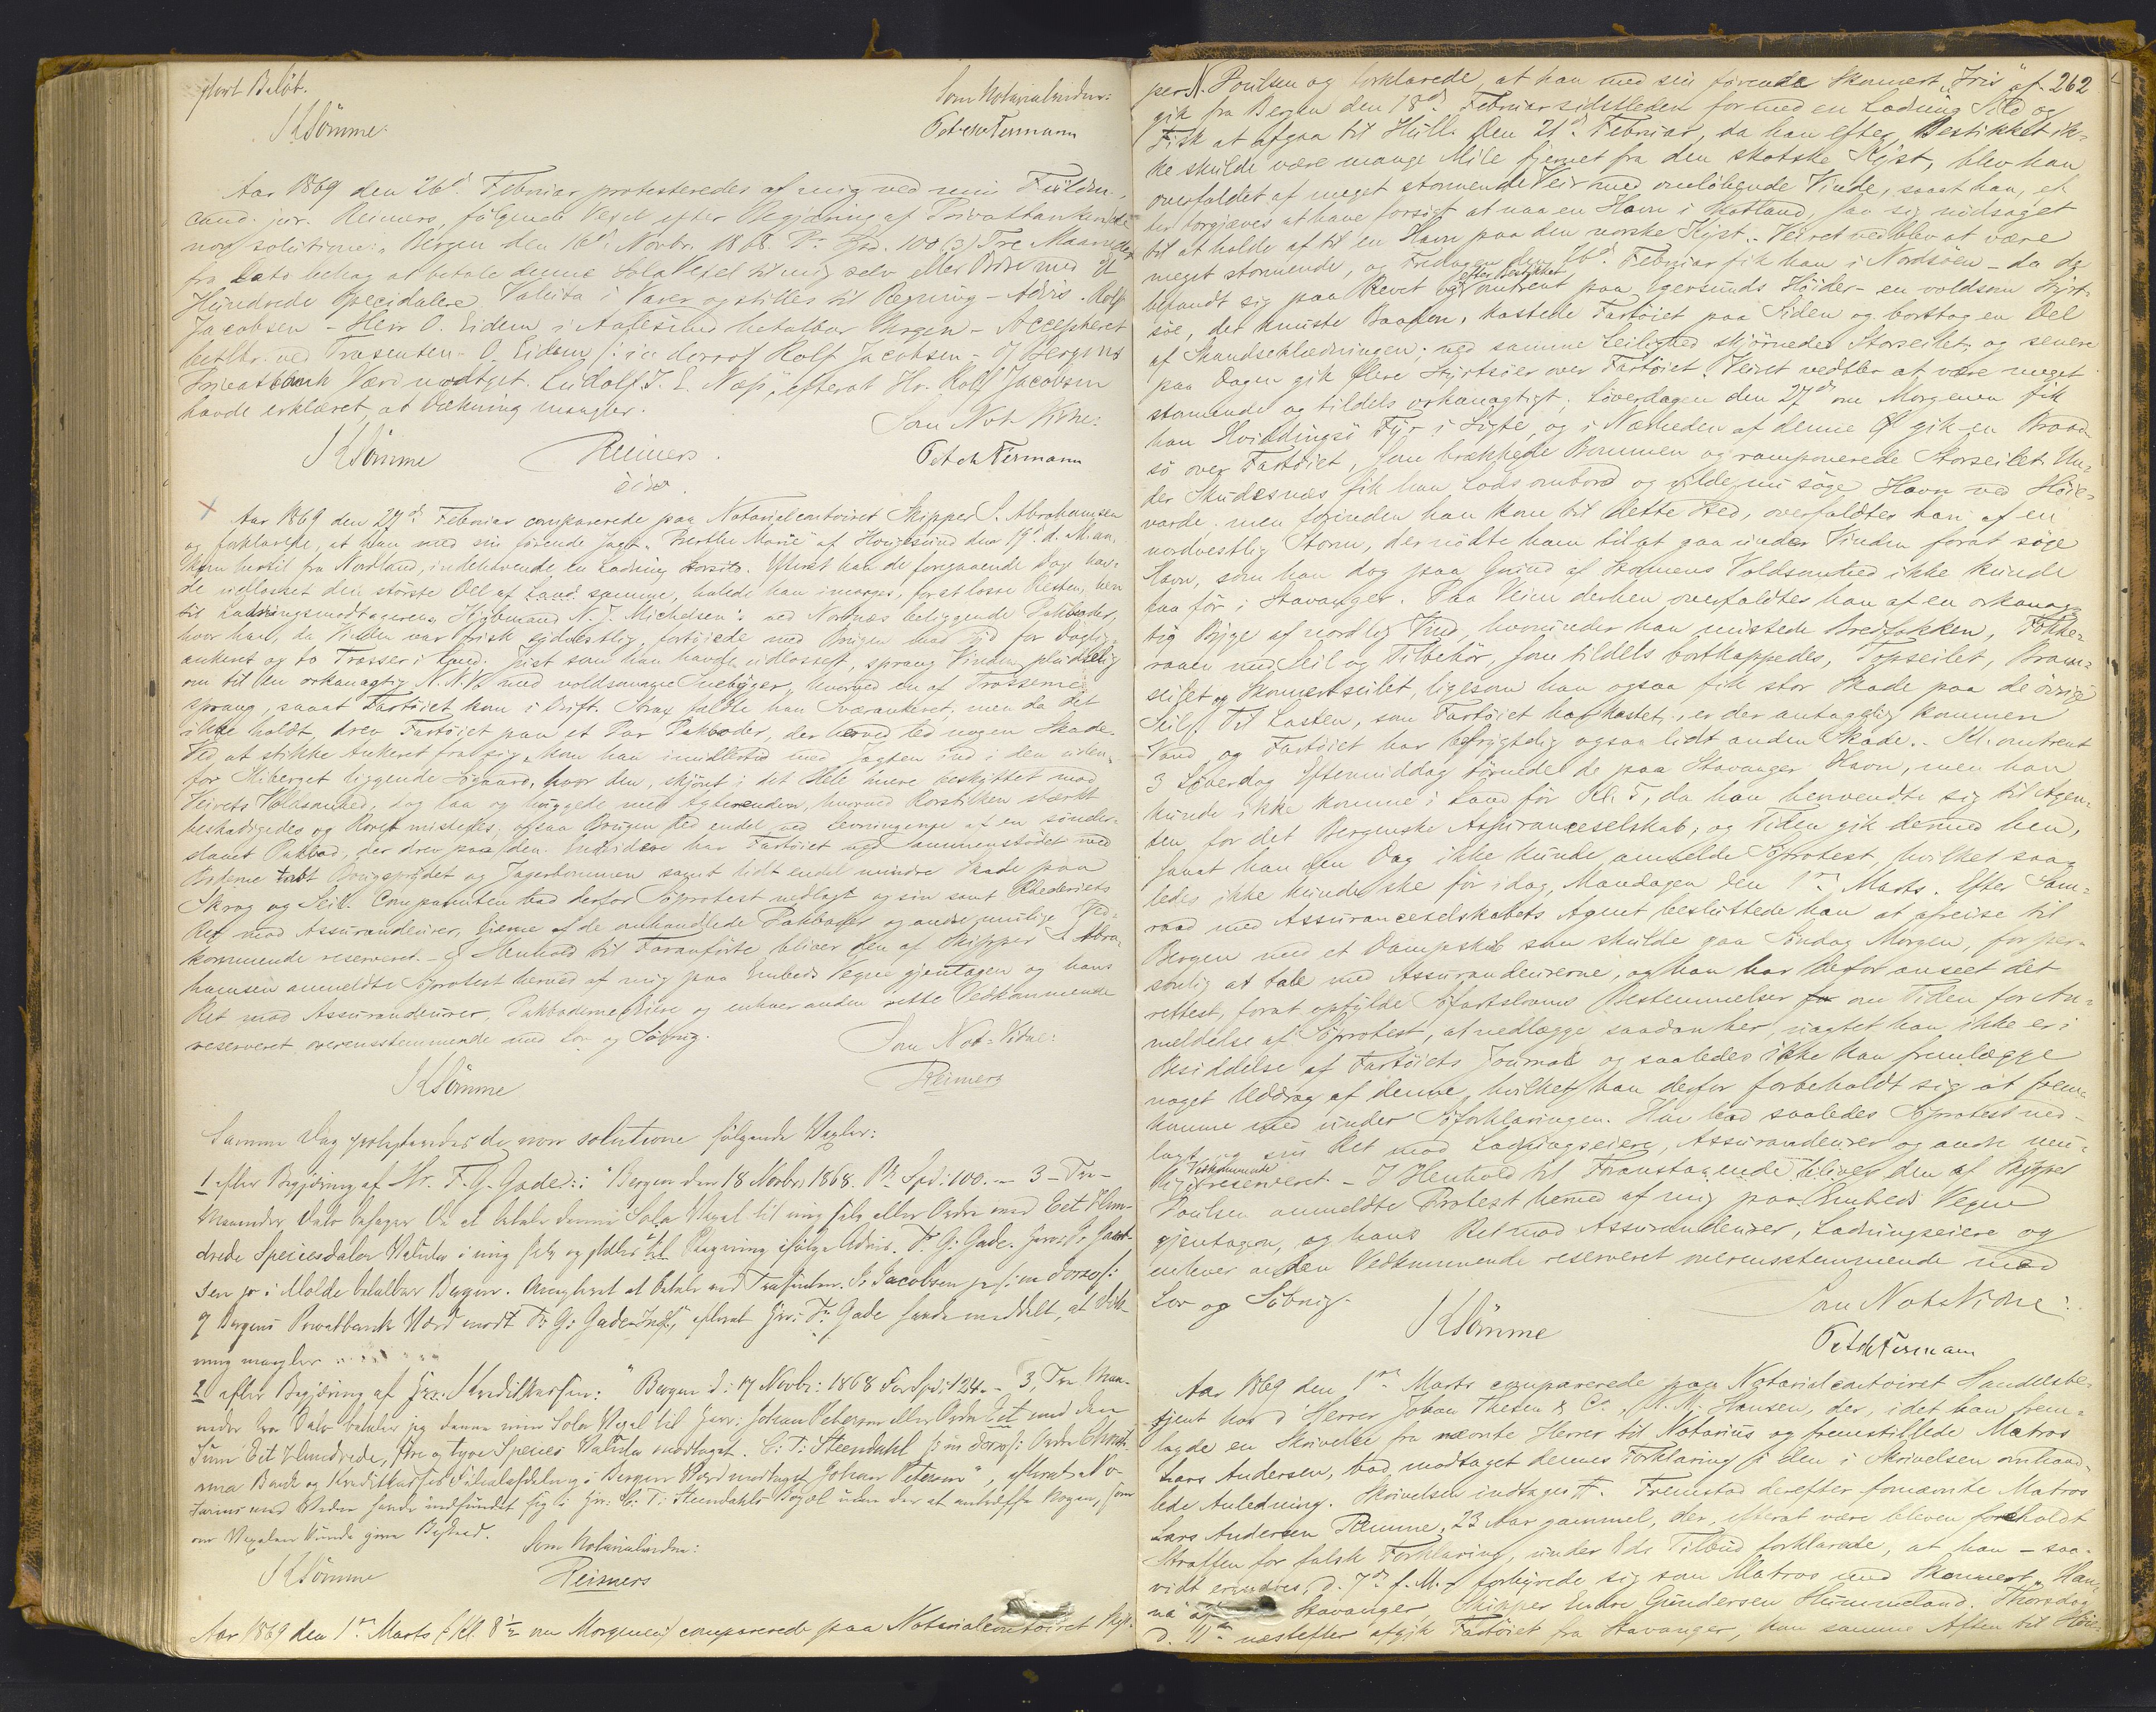 ført Beløb.
Som Notarialvidner:
KSömme.
Aar 1869 den 26d. Februar protesteredes af mig ved min Fuldm.
cand. jur. Reimers, følgende Vexel efter Begjæring af Privatbanken de
non solutione: "Bergen den 16d. Novbr. 1868. Pr. Spd. 100 (3) Tre Maaneder
fra Dato behag at betale denne Sola Vexel til mig selv eller Ordre med Et
Hundrede Speciedaler. Valuta i Varer og stilles til Regning - Advis. Rolf
Jacobsen - Herr O. Eidem i Aalesund betalbar Bergen - Accepteret
betlbr. ved Trasenten - O. Eidem /: in dorso /: Rolf Jacobsen - O/ Bergens
Privatbank Værd modtget. Ludolf J. E. Næss", efterat Hr. Rolf Jacobsen
havde erklæret, at Dækning mangler.
Som Not. Vitne:
KSömme
Reimers.
Aar 1869 den 27d. Februar comparerede paa Notarialcontoiret Skipper S. Abrahamsen
og forklarede, at han med sin førende Jagt "Berthe Marie" af Hougesund den 19d. d. M. an-
kom hertil fra Nordland, indehavende en Ladning Storsild. Efterat han de foregaaende Dage hav-
de udlosset den største Del af samme, halede han imorges, for at losse Resten, hen
til Ladningsmodtagerens, Kjøbmand N. J. Michelsens ved Nordnæs beliggende Pakboder,
hvor han, da Vinden var frisk sydvestlig, fortøiede med Brugen mod Syd for Daglig-
ankeret og to Trosser i Land. Just som han havde udlosset, sprang Vinden pludselig
om til en orkanagtig N.N.V. med voldsomme Snebyger, hvorved en af Trosserne
sprang, saaat Fartøiet kom i Drift. Strax faldte han Sværankeret, men da det
ikke holdt, drev Fartøiet paa et Par Pakboder, der herved led nogen Skade.
Ved at stikke Ankeret fra sig, kom han imidlertid med Jagten ind i den uden-
for liggende Søgaard, hvor den, skjønt i det Hele mere beskyttet mod
Veirets Voldsomhed, dog laa og huggede med Agterenden, hvorved Rorstilken stærkt
beskadigedes og Roret mistedes; ogsaa Brugen led endel ved Levningerne af en sønder-
slaaet Pakbod, der drev paa den. Endvidere har Fartøiet ved Sammenstødet med
Boderne tabt Bougsprydet og Jagerbommen samt lidt endel mindre Skade paa
Skrog og Seil. Comparenten bad derfor Søprotest nedlagt og sin samt Rhederiets
Ret mod Assurandeurer, Eierne af de omhandlede Pakboder og andre mulige Ved-
kommende reserveret. - I Henhold til Foranførte bliver den af Skipper S. Abra-
hamsen anmeldte Søprotest herved af mig paa Embeds Vegne gjentagen og hans
Ret mod Assurandeurer, Pakbodernes Eiere og enhver anden rette Vedkommende
reserveret overensstemmende med Lov og Søbrug.
Som Not. Vitne:
KSömme
Reimers
Samme Dag protesteredes de non solutione følgende Vexler:
1 efter Begjæring af Hr. F. G. Gade: "Bergen den 18 Novbr 1868. Pr. Spd: 100. - 3 - Tre -
Maaneder Dato behager De at betale denne Sola Vexel til mig selv eller Ordre med Eet Hun-
drede Speciesdaler Valuta i mig selv og stilles til Regning ifølge Advis. F. G. Gade. Herr P. Jacob-
sen jr i Molde betalbar Bergen. Accepteret at betale ved Trasenten. P. Jacobsen jr /: in dorso /:
O/ Bergens Privatbank Værd modt F. G. Gade", efterat Hr. Fr. Gade havde meddelt, at Dæk-
ning mangler.
2 efter Begjæring af Hrr. Kreditkassen: "Bergen d: 17 Novbr: 1868 For Spd: 124. - 3, Tre Maa-
neder fra Dato betaler jeg denne min Sola Vexel til Herr: Johan Petersen eller Ordre med den
Sum Eet Hundrede, fire og tyve Species Valuta modtaget. C: T: Steendahl /: in dorso /: Ordre Christi-
ania Bank og Kreditkasses Filialafdeling i Bergen Værd modtaget Johan Petersen", efterat No-
tarius med Vidner havde indfundet sig i Hr: C: T: Steendahls Bopæl uden der at antræffe Nogen, som
om Vexelen kunde give Besked.
Som Notarialvidne:
KSömme
Reimers
Aar 1869 den 1ste Marts (Kl. 8½ om Morgenen) comparerede paa Notarialcontoiret Skip-
262
per N. Poulsen og forklarede, at han med sin førende Skonnert "Iris" af
gik fra Bergen den 18d. Februar sidstleden for med en Ladning Sild og
Fisk at afgaa til Hull. Den 21d. Februar, da han efter Bestikket ik-
ke skulde være mange Mile fjernet fra den skotske Kyst, blev han
overfaldet af meget stormende Veir med omløbende Vinde, saaat han, ef-
ter forgjæves at have forsøgt at naa en Havn i Skotland, saa sig nødsaget
til at holde af til en Havn paa den norske Kyst. - Veiret vedblev at være
meget stormende, og Fredagen den 26d. Februar fik han i Nordsöen - da de
befandt sig paa Revet og efter Bestikket omtrent paa Egersunds Høider - en voldsom Styrt-
søe, der knuste Baaden, kastede Fartøiet paa Siden og borttog en Del
af Skandseklædningen; ved samme Leilighed skjørnedes Storseilet, og senere
paa Dagen gik flere Styrtsøer over Fartøiet. Veiret vedblev at være meget
stormende og tildels orkanagtigt; Löverdagen den 27d. om Morgenen fik
han Hvidingsö Fyr i Sigte, og i Nærheden af denne Ø gik en Braad-
sø over Fartøiet, som brækkede Bommen og ramponerede Storseilet. Un-
der Skudesnæs fik han Lods ombord og vilde nu søge Havn ved Høie-
varde. men forinden han kom til dette Sted, overfaldtes han af en
nordvestlig Storm, der nødte ham til at gaa under Vinden forat søge
Havn, som han dog paa Grund af Stormens Voldsomhed ikke kunde
faa før i Stavanger. Paa Veien derhen overfaldtes han af en orkanag-
tig Byge af nordlig Vind, hvorunder han mistede Bredfokken, Fokke-
raaen med Seil og Tilbehör, som tildels bortkappedes, Topseilet, Bram-
seilet og Skonnertseilet, ligesom han ogsaa fik stor Skade paa de øvrige
Seil. Til Lasten, som Fartøiet har kastet, er der antagelig kommen
Vand og Fartøiet har befrygtelig ogsaa lidt anden Skade. - Kl. omtrent
3 Løverdag Eftermiddag tørnede de paa Stavanger Havn, men han
kunde ikke komme i Land før Kl. 5, da han henvendte sig til Agen-
ten for det Bergenske Assuranceselskab, og Tiden gik dermed hen,
saaat han den Dag ikke kunde anmelde Søprotest, hvilket saa-
ledes ikke kunde ske før idag, Mandagen den 1ste Marts. Efter Sam-
raad med Assuranceselskabets Agent besluttede han at afreise til
Bergen med et Dampskib som skulde gaa Søndag Morgen, for per-
sonlig at tale med Assurandeurerne, og han har derfor anseet det
rettest, forat opfylde Søfartslovens Bestemmelser om Tiden for An-
meldelse af Søprotest, at nedlægge saadan her, uagtet han ikke er i
Besiddelse af Fartøiets Journal og saaledes ikke kan fremlægge
noget Uddrag af denne, hvilket han derfor forbeholdt sig at frem-
komme med under Søforklaringen. Han bad saaledes Søprotest ned-
lagt og sin Ret mod Ladningseiere, Assurandeurer og andre mu-
lige Vedkommende reserveret. - I Henhold til Foranstaaende bliver den af Skipper
Poulsen anmeldte Protest herved af mig paa Embeds Vegne
gjentagen, og hans Ret mod Assurandeurer, Ladningseiere og
enhver anden Vedkommende reserveret overensstemmende med
Lov og Søbrug.
Som Not. Vidne:
KSömme
Aar 1869 den 1ste Marts comparerede paa Notarialcontoiret Handelsbe-
tjent hos d'Herrer Johan Thesen & Co., M. Hansen, der, idet han frem-
lagde en Skrivelse fra nævnte Herrer til Notarius og fremstillede Matros
Lars Andersen, bad modtaget dennes Forklaring i den i Skrivelsen omhand-
lede Anledning. Skrivelsen indtages #. Fremstod derefter fornævnte Matros
Lars Andersen, 23 Aar gammel, der, efterat være bleven foreholdt
Straffen for falsk Forklaring, under Eds Tilbud forklarede, at han - saa-
vidt erindres, d. 7d. f. M. - forhyrede sig som Matros med Skonnert "Han-
na" af Stavanger, Skipper Endre Gundersen Hummeland. Thorsdag
d. 11te næstefter afgik Fartøiet fra Stavanger, kom samme Aften til